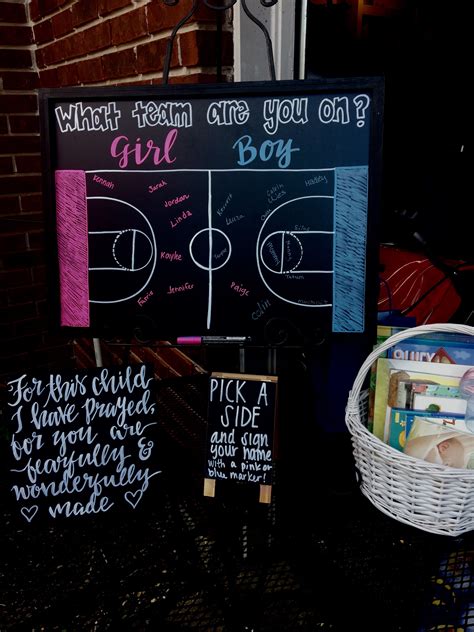 What team are you on?
Girl Boy
Hannah
Sarah
Jordan
Linda
Kayke
Jennifer
Paige
Colin
Hadley
PICK A
SIDE
and sign
your name
with a pink or
blue marker!
For this child
I have prayed,
for you are
fearfully &
wonderfully
♡ made ♡